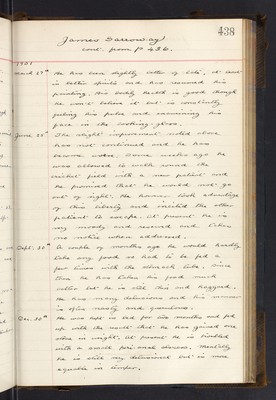 438
James Garroway
cont. from p 436.
1901
March 29th He has been slightly better of late, at least
in better spirits and has resumed his
painting. His bodily health is good though
he won't believe it but is constantly
feeling his pulse and examining his
face in the looking-glass.
June 26th The slight improvement noted above
has not continued and he has
become worse. Some weeks ago he
was allowed to walk round the
cricket field with a new patient and
he promised that he would not go
out of sight. He however took advantage
of this liberty and incited the other
patient to escape. At present he is
very moody and reserved and takes
no notice when addressed.
Sept. 30th A couple of months ago he would hardly
take any food so had to be fed a
few times with the stomach tube, since
then he has taken his food much
better but he is still thin and haggard.
He has many delusions and his manner
is often nasty and querulous.
Dec. 30th He was kept in bed for six months and fed
up with the result that he has gained one
stone in weight. At present he is troubled
with a small perineal abscess. Mentally
he is still very delusional but is more
equable in temper.